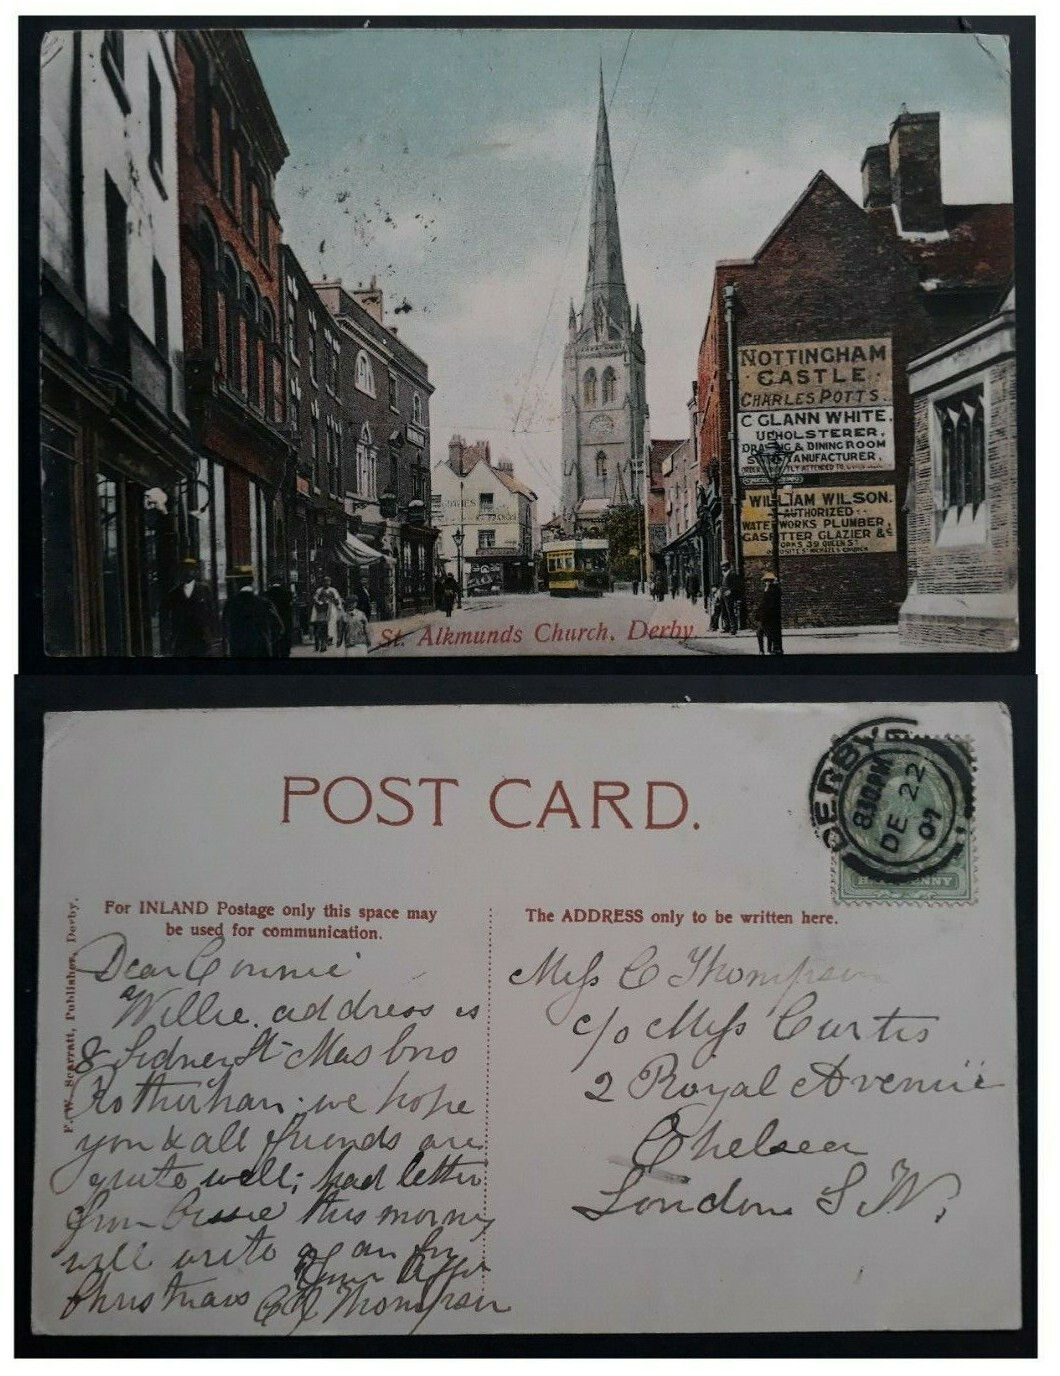 NOTTINGHAM
CASTLE
CHARLES POTTS.
C GLANN WHITE.
UPHOLSTERER,
& DINING ROOM
MANUFACTURER,
WILLIAM WILSON.
AUTHORIZED
WATERWORKS PLUMBER,
GASFITTER GLAZIER &c
39 QUEEN ST
St. Alkmunds Church, Derby.
POST CARD.
DERBY
8.30PM
DE 22
07
For INLAND Postage only this space may
be used for communication.
The ADDRESS only to be written here.
F. W. Scarratt, Publisher, Derby.
Dear Connie
Willie address is
8 Sidney St Masbro
Rotherham. we hope
you & all friends are
quite well; had letter
from Bessie this morning
will write again for
Christmas
C Thompson
Miss C Thompson
c/o Miss Curtis
2 Royal Avenue
Chelsea
London S.W.